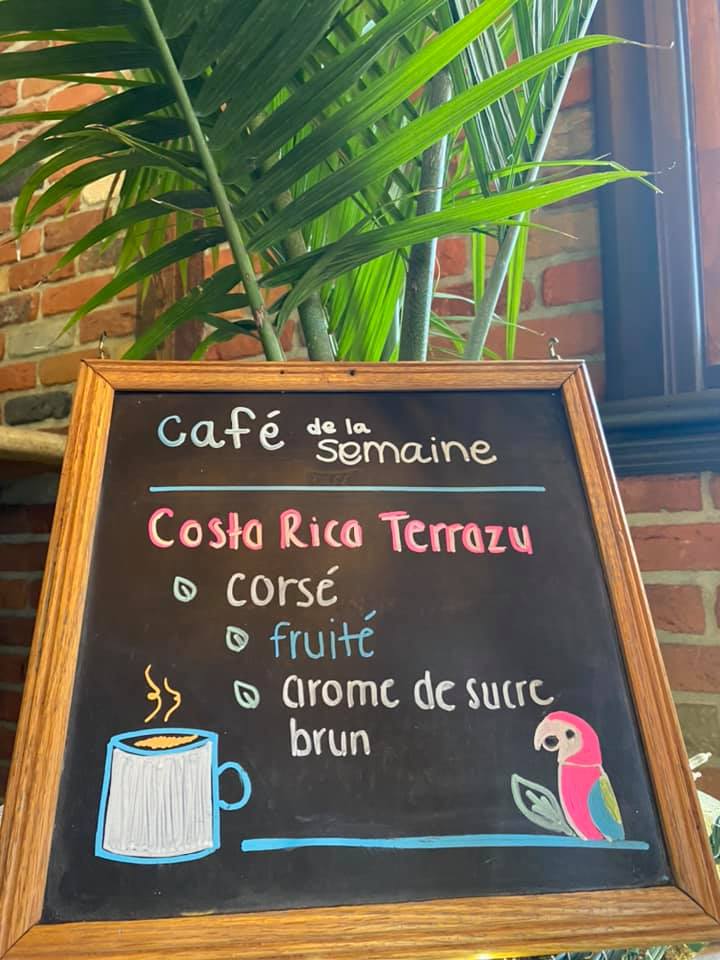 Café de la semaine
Costa Rica Terrazu
corsé
fruité
arome de sucre
brun